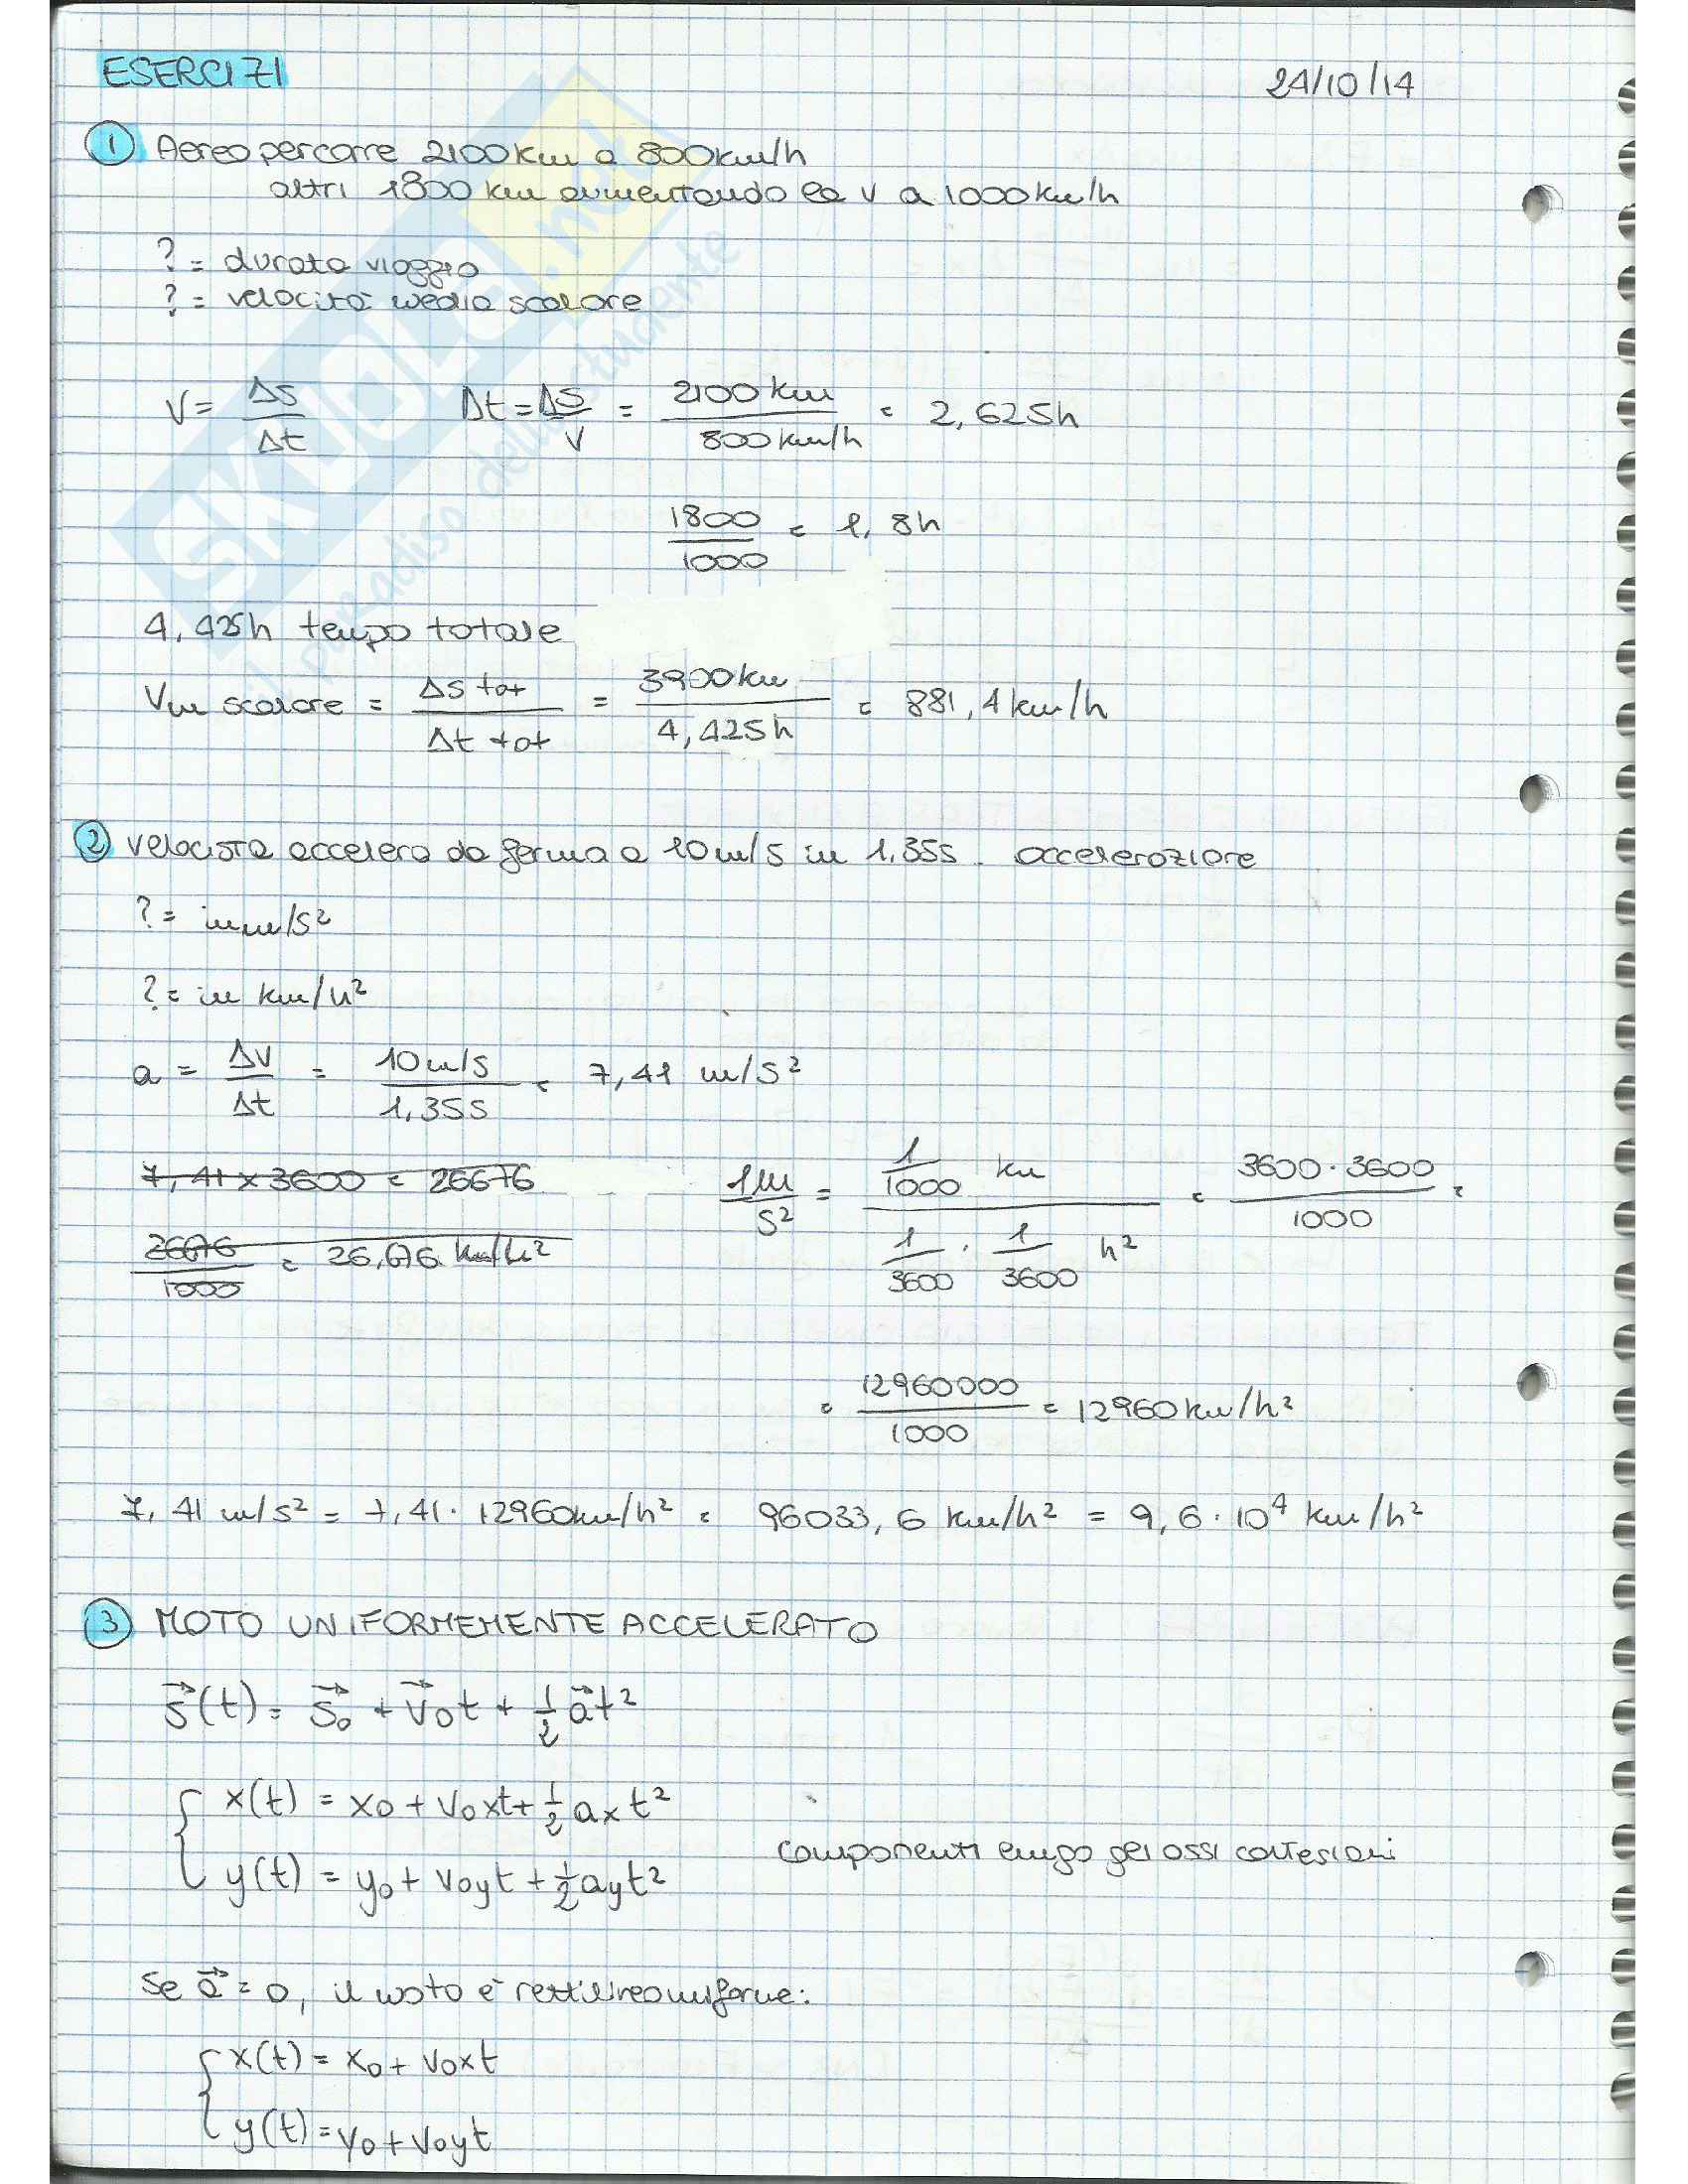 ESERCIZI
24/10/14
① Aereo percorre 2100 km a 800 km/h
altri 1800 km aumentando la v a 1000 km/h
? = durata viaggio
? = velocità media scalare
V = Δs/Δt   Δt = Δs/v = 2100 km / 800 km/h = 2,625h
1800/1000 = 1,8h
4,425h tempo totale
Vm scalare = Δs tot / Δt tot = 3900 km / 4,425h = 881,4 km/h
② velocista accelera da ferma a 10 m/s in 1,35s. accelerazione
? = in m/s²
? = in km/h²
a = Δv/Δt = 10 m/s / 1,35s = 7,41 m/s²
7,41 x 3600 = 26676   1m/s² = 1/1000 km / 1/3600 · 1/3600 h² = 3600·3600/1000 =
26676/1000 = 26,676 km/h²
= 12960000/1000 = 12960 km/h²
7,41 m/s² = 7,41 · 12960 km/h² = 96033,6 km/h² = 9,6 · 10⁴ km/h²
③ MOTO UNIFORMEMENTE ACCELERATO
s⃗(t) = s⃗₀ + v⃗₀t + 1/2 a⃗t²
x(t) = x₀ + v₀xt + 1/2 aₓt²
componenti lungo gli assi cartesiani
y(t) = y₀ + v₀yt + 1/2 ayt²
Se a⃗ = 0, il moto è rettilineo uniforme:
x(t) = x₀ + v₀xt
y(t) = y₀ + v₀yt
SKUOLA.net
il paradiso dello studente